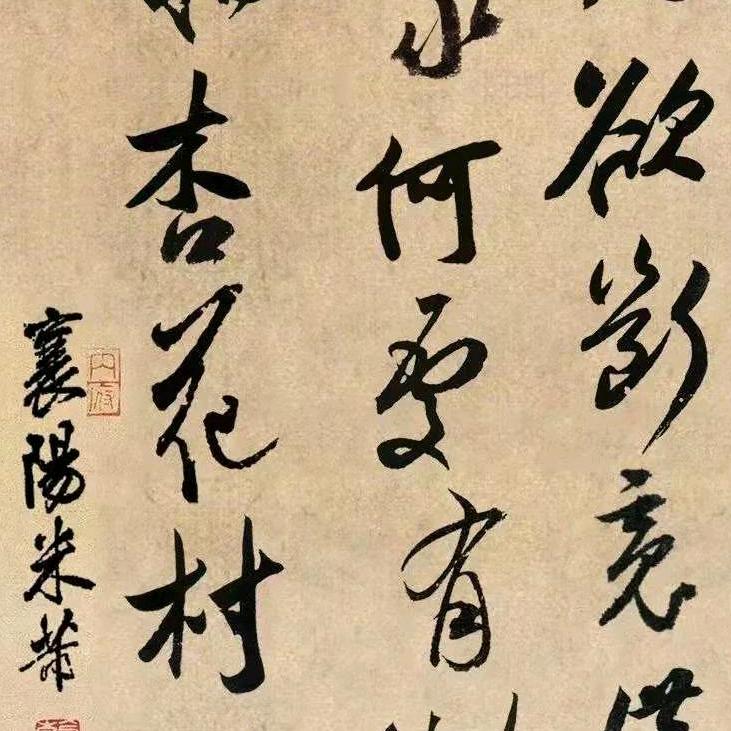 欲斷魂
家何處有
杏花村
襄陽米芾
内府